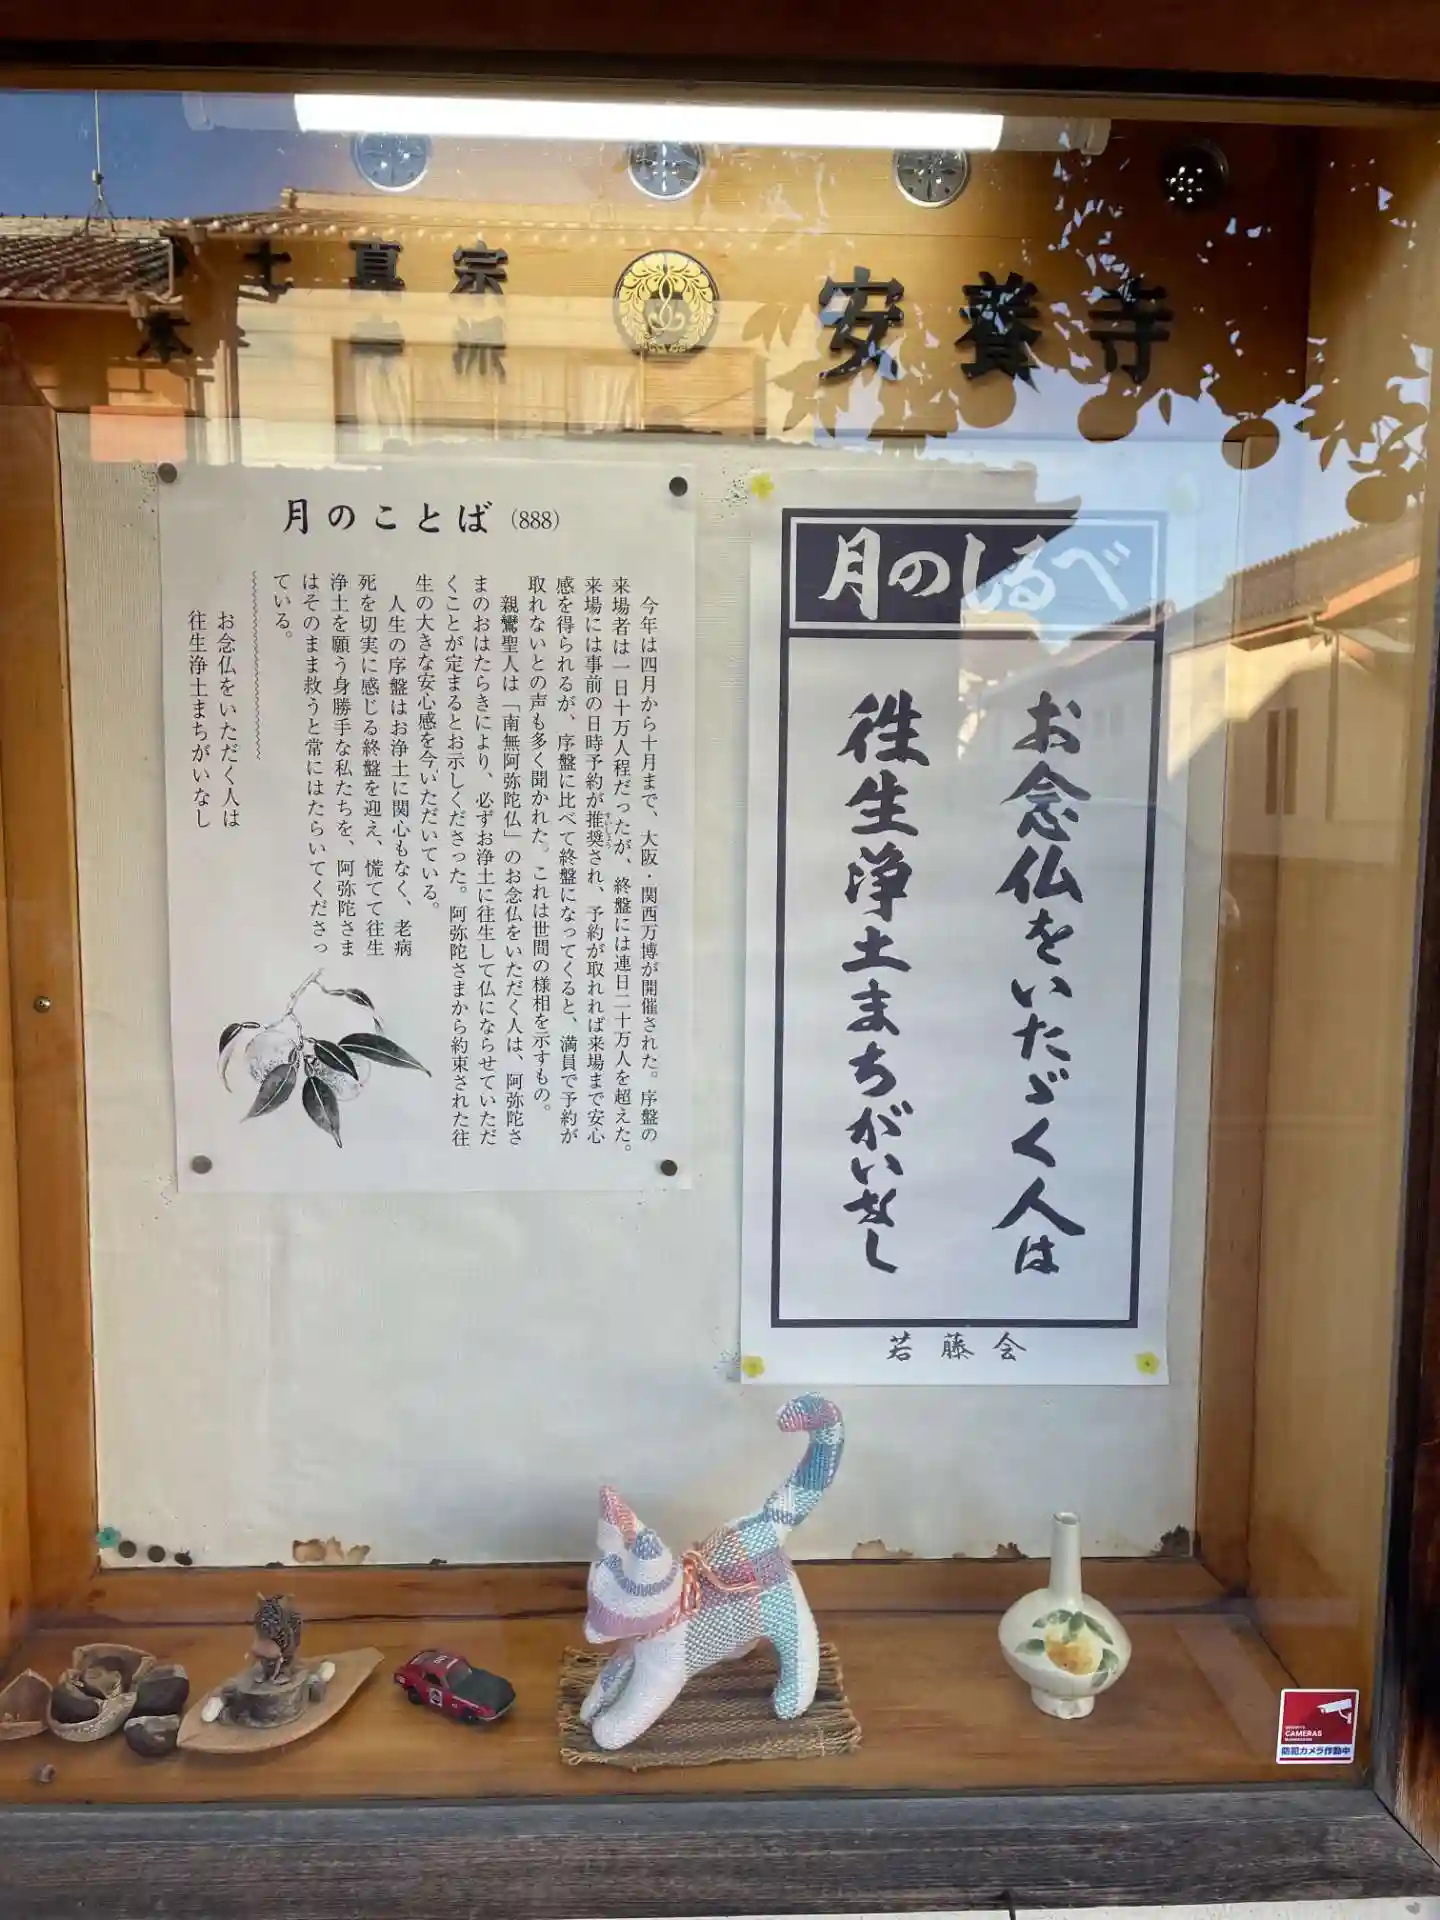 安養寺
真宗
派
月のしるべ
お念仏をいたゞく人は
往生浄土まちがいなし
若藤会
月のことば（888）
今年は四月から十月まで、大阪・関西万博が開催された。序盤の
来場者は一日十万人程だったが、終盤には連日二十万人を超えた。
来場には事前の日時予約が推奨され、予約が取れれば来場まで安心
すいしょう
感を得られるが、序盤に比べて終盤になってくると、満員で予約が
取れないとの声も多く聞かれた。これは世間の様相を示すもの。
親鸞聖人は「南無阿弥陀仏」のお念仏をいただく人は、阿弥陀さ
まのおはたらきにより、必ずお浄土に往生して仏にならせていただ
くことが定まるとお示しくださった。阿弥陀さまから約束された往
生の大きな安心感を今いただいている。
人生の序盤はお浄土に関心もなく、老病
死を切実に感じる終盤を迎え、慌てて往生
浄土を願う身勝手な私たちを、阿弥陀さま
はそのまま救うと常にはたらいてくださっ
ている。
お念仏をいただく人は
往生浄土まちがいなし
CAMERAS
防犯カメラ作動中